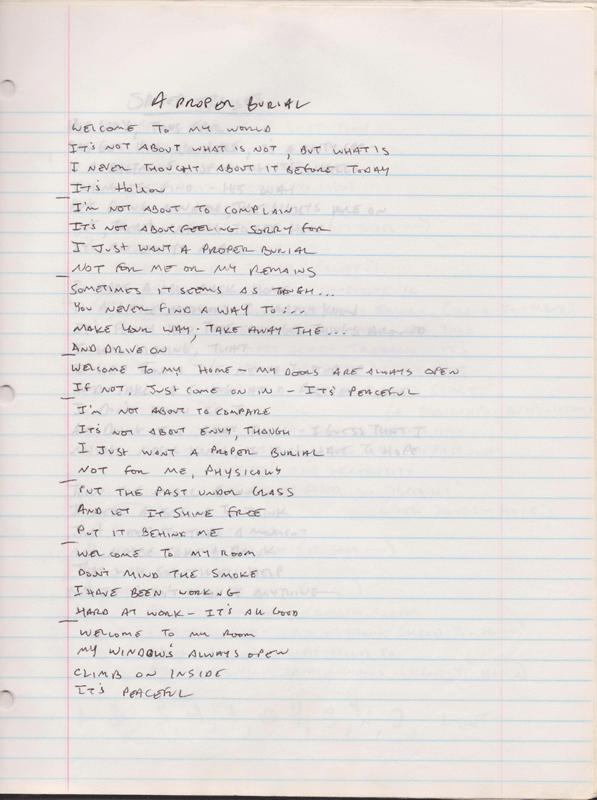 A PROPER BURIAL
WELCOME TO MY WORLD
IT'S NOT ABOUT WHAT IS NOT, BUT WHAT IS
I NEVER THOUGHT ABOUT IT BEFORE TODAY
IT'S
I'M NOT ABOUT TO COMPLAIN
IT'S NOT ABOUT FEELING SORRY FOR
I JUST WANT A PROPER BURIAL
NOT FOR ME OR MY REMAINS
SOMETIMES IT SEEMS AS THOUGH...
YOU NEVER FIND A WAY TO....
MAKE YOUR WAY, TAKE AWAY THE...
AND DRIVE ON
WELCOME TO MY HOME - MY DOORS ARE ALWAYS OPEN
IF NOT, JUST COME ON IN - IT'S PEACEFUL
I'M NOT ABOUT TO COMPARE
IT'S NOT ABOUT ENVY, THOUGH
I JUST WANT A PROPER BURIAL
NOT FOR ME, PHYSICALLY
PUT THE PAST UNDER GLASS
AND LET IT SHINE FREE
PUT IT BEHIND ME
WELCOME TO MY ROOM
DON'T MIND THE SMOKE
I HAVE BEEN WORKING
HARD AT WORK - IT'S ALL GOOD
WELCOME TO MY ROOM
MY WINDOW'S ALWAYS OPEN
CLIMB ON INSIDE
IT'S PEACEFUL